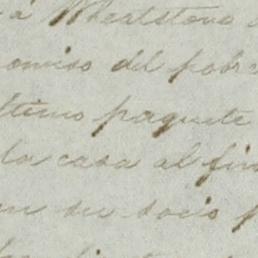 á Wheatstone
omiso del pobre
ltimo paquete
la casa al fin
en su socio p